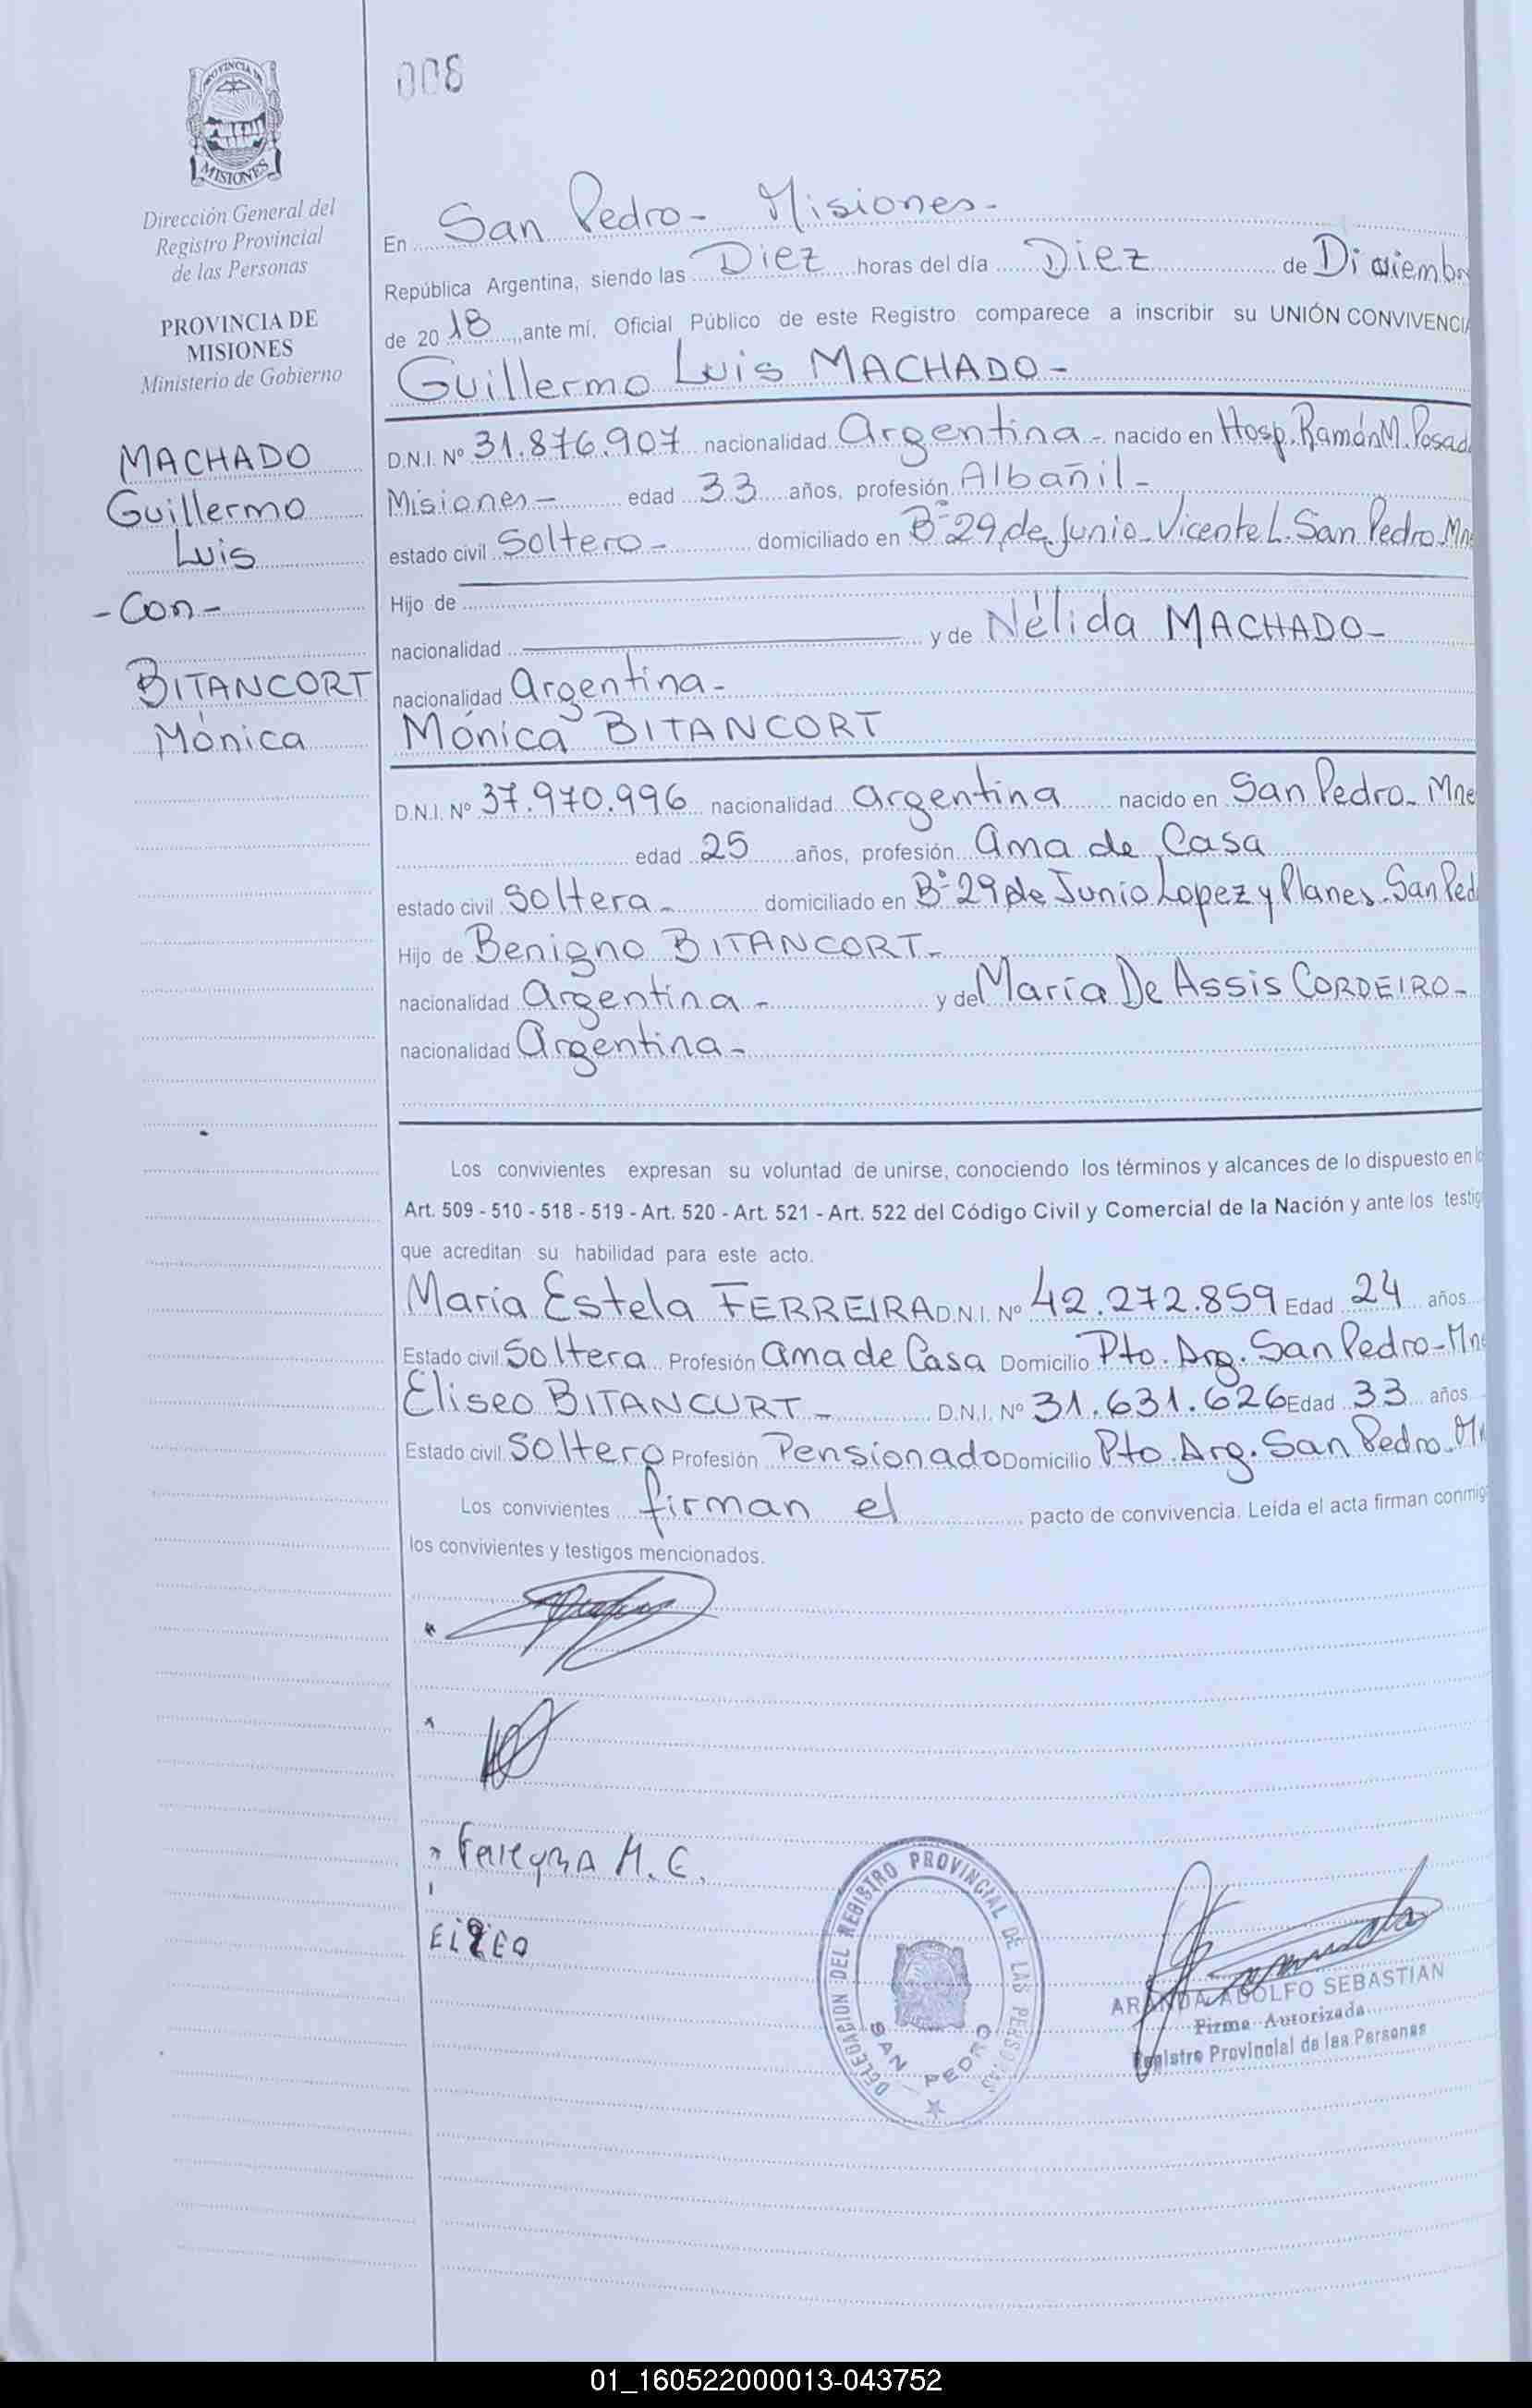 008
PROVINCIA DE
MISIONES
Dirección General del
Registro Provincial
de las Personas
PROVINCIA DE
MISIONES
Ministerio de Gobierno
MACHADO
Guillermo
Luis
- Con -
BITANCORT
Mónica
En San Pedro - Misiones -
República Argentina, siendo las Diez horas del día Diez de Diciemb
de 20 18, ante mí, Oficial Público de este Registro comparece a inscribir su UNIÓN CONVIVENCIA
Guillermo Luis MACHADO -
D.N.I. Nº 31.876.907 nacionalidad Argentina - nacido en Hosp. Ramón M. Posad
Misiones - edad 33 años, profesión Albañil -
estado civil Soltero - domiciliado en Bº 29 de Junio - Vicente L. San Pedro - Mne
Hijo de
nacionalidad y de Nélida MACHADO -
nacionalidad Argentina -
Mónica BITANCORT
D.N.I. Nº 37.970.996 nacionalidad Argentina nacido en San Pedro - Mne
edad 25 años, profesión Ama de Casa
estado civil Soltera - domiciliado en Bº 29 de Junio Lopez y Planes - San Ped
Hijo de Benigno BITANCORT -
nacionalidad Argentina - y de María De Assis CORDEIRO -
nacionalidad Argentina -
Los convivientes expresan su voluntad de unirse, conociendo los términos y alcances de lo dispuesto en lo
Art. 509 - 510 - 518 - 519 - Art. 520 - Art. 521 - Art. 522 del Código Civil y Comercial de la Nación y ante los testig
que acreditan su habilidad para este acto.
María Estela FERREIRA D.N.I. Nº 42.272.859 Edad 24 años
Estado civil Soltera Profesión Ama de Casa Domicilio Pto. Arg. San Pedro - Mne
Eliseo BITANCURT - D.N.I. Nº 31.631.626 Edad 33 años
Estado civil Soltero Profesión Pensionado Domicilio Pto. Arg. San Pedro - Mn
Los convivientes firman el pacto de convivencia. Leída el acta firman conmig
los convivientes y testigos mencionados.
M. E.
DELEGACION DEL REGISTRO PROVINCIAL DE LAS PERSONAS
SAN PEDRO
ARANDA ADOLFO SEBASTIAN
Firma Autorizada
Registro Provincial de las Personas
01_160522000013-043752